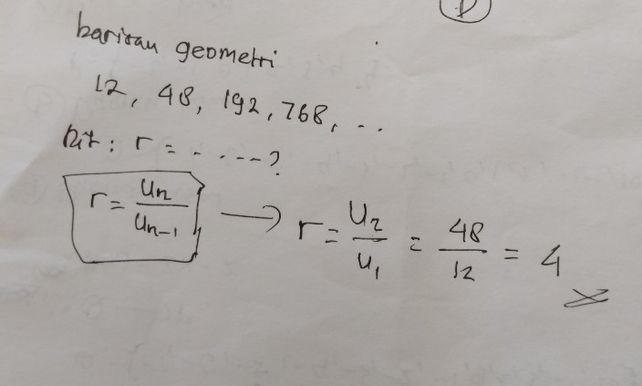 barisan geometri
12, 48, 192, 768, ...
Dit : r = ......?
r = Un / Un-1 → r = U2 / U1 = 48 / 12 = 4